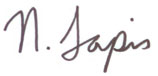 N. Lapis